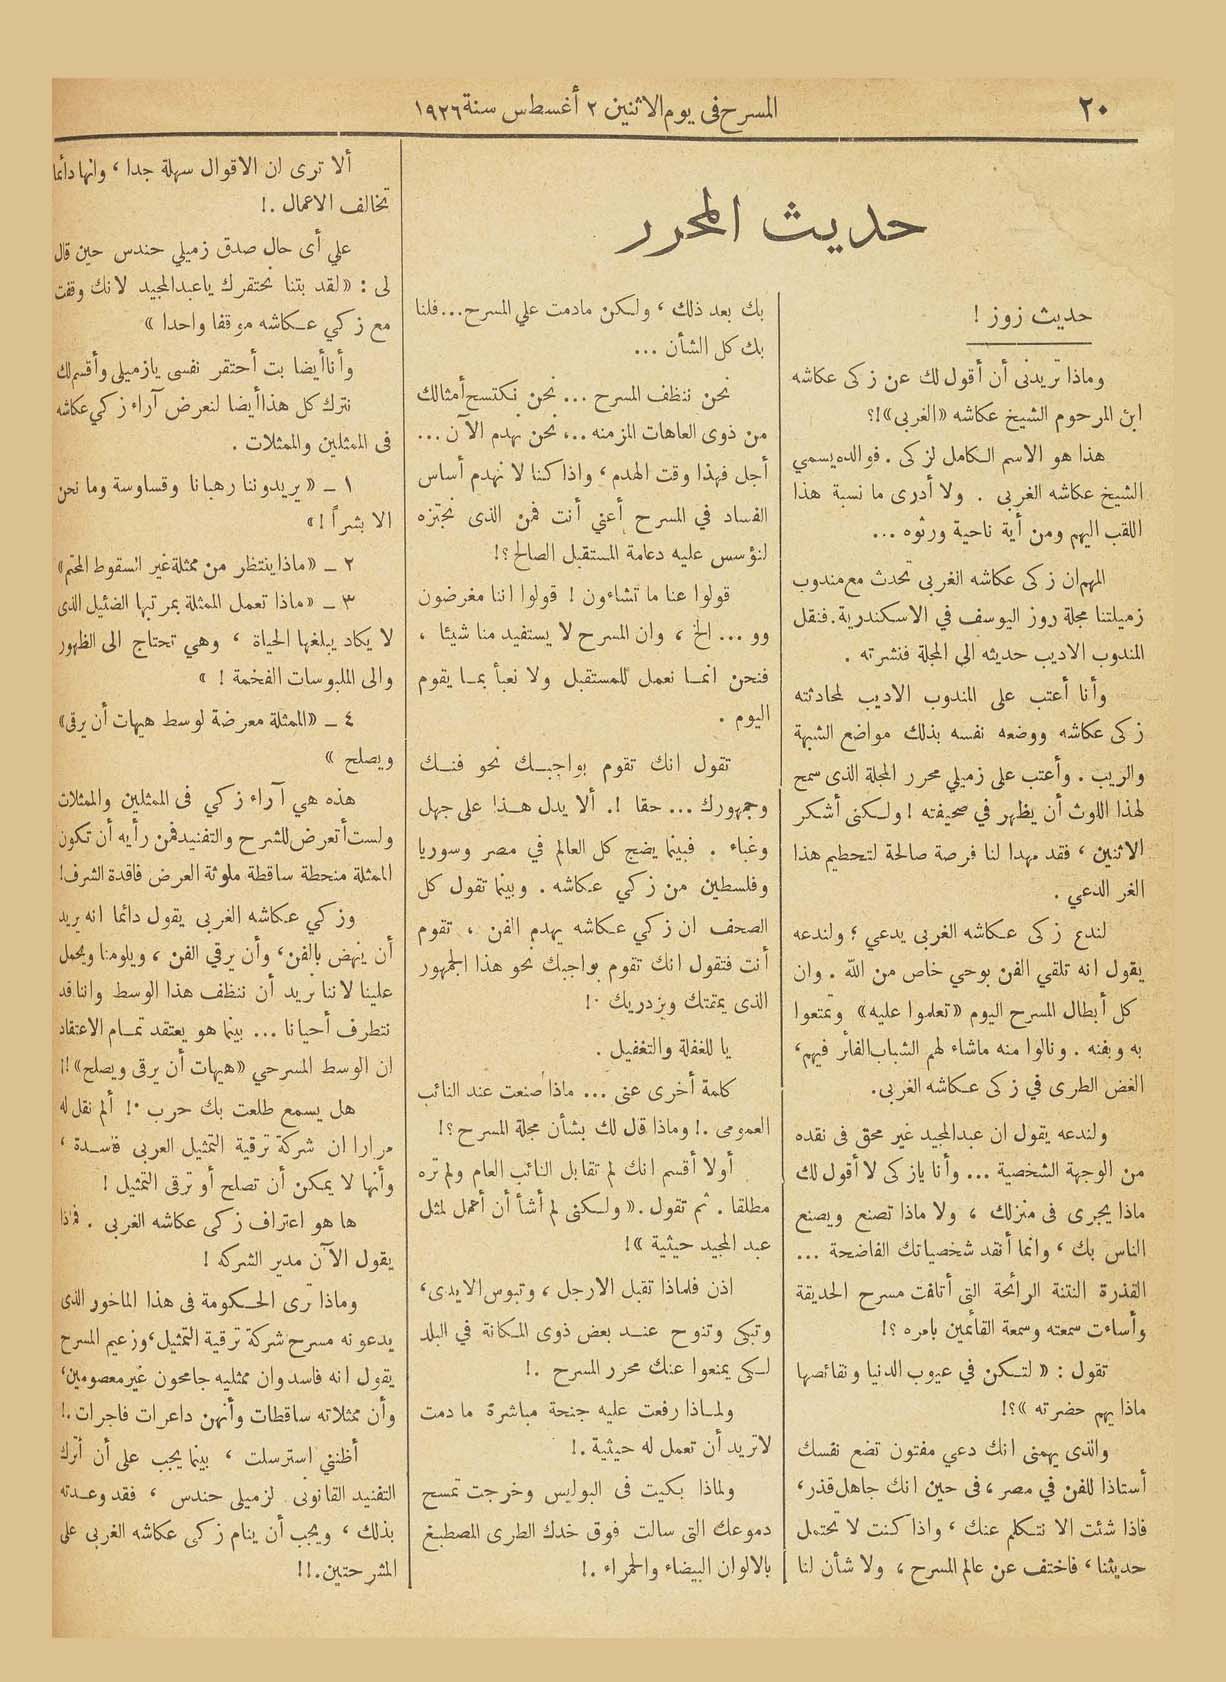 ٢٠
المسرح فى يوم الاثنين ٢ أغسطس سنة ١٩٢٦
حديث المحرر
حديث زوز !
وماذا تريدنى أن أقول لك عن زكى عكاشه
ابن المرحوم الشيخ عكاشه «الغربى»!؟
هذا هو الاسم الكامل لزكى . فوالده يسمي
الشيخ عكاشه الغربى . ولا أدرى ما نسبة هذا
اللقب اليهم ومن أية ناحية ورثوه ...
المهم ان زكى عكاشه الغربى تحدث مع مندوب
زميلتنا مجلة روز اليوسف في الاسكندرية. فنقل
المندوب الاديب حديثه الى المجلة فنشرته .
وأنا أعتب على المندوب الاديب لمحادثته
زكى عكاشه ووضعه نفسه بذلك مواضع الشبهة
والريب . وأعتب على زميلي محرر المجلة الذى سمح
لهذا اللوث أن يظهر في صحيفته ! ولكنى أشكر
الاثنين ، فقد مهدا لنا فرصة صالحة لتحطيم هذا
الغر الدعي .
لندع زكى عكاشه الغربى يدعي ؛ ولندعه
يقول انه تلقي الفن بوحي خاص من الله . وان
كل أبطال المسرح اليوم «تعلموا عليه» وتمتعوا
به وبفنه . ونالوا منه ماشاء لهم الشباب الفائر فيهم،
الغض الطرى في زكى عكاشه الغربى.
ولندعه يقول ان عبدالمجيد غير محق فى نقده
من الوجهة الشخصية ... وأنا يازكى لا أقول لك
ماذا يجرى فى منزلك ، ولا ماذا تصنع ويصنع
الناس بك ، وانما أنقد شخصياتك الفاضحة ...
القذرة النتنة الرائحة التى أتلفت مسرح الحديقة
وأساءت سمعته وسمعة القائمين بامره ؟!
تقول : « لتكن في عيوب الدنيا ونقائصها
ماذا يهم حضرته »؟!
والذى يهمنى انك دعي مفتون تضع نفسك
أستاذا للفن في مصر، فى حين انك جاهل قذر،
فاذا شئت الا نتكلم عنك ، واذا كنت لا تحتمل
حديثنا ، فاختف عن عالم المسرح ، ولا شأن لنا
بك بعد ذلك ، ولكن مادمت علي المسرح... فلنا
بك كل الشأن ...
نحن ننظف المسرح ... نحن نكتسح أمثالك
من ذوى العاهات المزمنه ... نحن نهدم الآن ...
أجل فهذا وقت الهدم ، واذا كنا لا نهدم أساس
الفساد في المسرح أعني أنت فمن الذى نجتزه
لنؤسس عليه دعامة المستقبل الصالح ؟!
قولوا عنا ما تشاءون ! قولوا اننا مغرضون
وو ... الخ ، وان المسرح لا يستفيد منا شيئا ،
فنحن انما نعمل للمستقبل ولا نعبأ بما يقوم
اليوم .
تقول انك تقوم بواجبك نحو فنك
وجمهورك ... حقا !. ألا يدل هذا على جهل
وغباء . فبينما يضج كل العالم في مصر وسوريا
وفلسطين من زكي عكاشه . وبينما تقول كل
الصحف ان زكي عكاشه يهدم الفن ، تقوم
أنت فتقول انك تقوم بواجبك نحو هذا الجمهور
الذى يمقتك ويزدريك .!
يا للغفلة والتغفيل .
كلمة أخرى عنى ... ماذا صنعت عند النائب
العمومى .! وماذا قال لك بشأن مجلة المسرح ؟!
أولا أقسم انك لم تقابل النائب العام ولم تره
مطلقا . ثم تقول . « ولكنى لم أشأ أن أعمل لمثل
عبد المجيد حيثية »!
اذن فلماذا تقبل الارجل ، وتبوس الايدى،
وتبكى وتنوح عند بعض ذوى المكانة في البلد
لكى يمنعوا عنك محرر المسرح .!
ولماذا رفعت عليه جنحة مباشرة ما دمت
لاتريد أن تعمل له حيثية .!
ولماذا بكيت فى البوليس وخرجت تمسح
دموعك التى سالت فوق خدك الطرى المصطبغ
بالالوان البيضاء والحمراء .!
ألا ترى ان الاقوال سهلة جدا ، وانها دائما
تخالف الاعمال .!
علي أى حال صدق زميلي حندس حين قال
لى : « لقد بتنا نحتقرك ياعبدالمجيد لانك وقفت
مع زكي عكاشه موقفا واحدا »
وأنا أيضا بت أحتقر نفسى يازميلى وأقسم لك
نترك كل هذا أيضا لنعرض آراء زكي عكاشه
فى الممثلين والممثلات .
١ ـ « يريدوننا رهبانا وقساوسة وما نحن
الا بشراً !»
٢ ـ «ماذا ينتظر من ممثلة غير السقوط المحتم»
٣ ـ «ماذا تعمل الممثلة بمرتبها الضئيل الذى
لا يكاد يبلغها الحياة ، وهي تحتاج الى الظهور
والى الملبوسات الفخمة ! »
٤ ـ «الممثلة معرضة لوسط هيهات أن يرقى»
ويصلح »
هذه هي آراء زكي فى الممثلين والممثلات
ولست أتعرض للشرح والتفنيد فمن رأيه أن تكون
الممثلة منحطة ساقطة ملوثة العرض فاقدة الشرف!
وزكي عكاشه الغربى يقول دائما انه يريد
أن ينهض بالفن، وأن يرقي الفن ، ويلومنا ويحمل
علينا لاننا نريد أن ننظف هذا الوسط واننا قد
نتطرف أحيانا ... بينما هو يعتقد تمام الاعتقاد
ان الوسط المسرحي «هيهات أن يرقى ويصلح»!!
هل يسمع طلعت بك حرب .! ألم نقل له
مرارا ان شركة ترقية التمثيل العربى فاسدة ،
وأنها لا يمكن أن تصلح أو ترقى التمثيل !
ها هو اعتراف زكى عكاشه الغربى . فماذا
يقول الآن مدير الشركه !
وماذا ترى الحكومة فى هذا الماخور الذى
يدعونه مسرح شركة ترقية التمثيل، وزعيم المسرح
يقول انه فاسد وان ممثليه جامحون غير معصومين،
وأن ممثلاته ساقطات وأنهن داعرات فاجرات .!
أظنني استرسلت ، بينما يجب على أن أترك
التفنيد القانونى لزميلى حندس ، فقد وعدته
بذلك ، ويجب أن ينام زكى عكاشه الغربى على
المشرحتين.!!